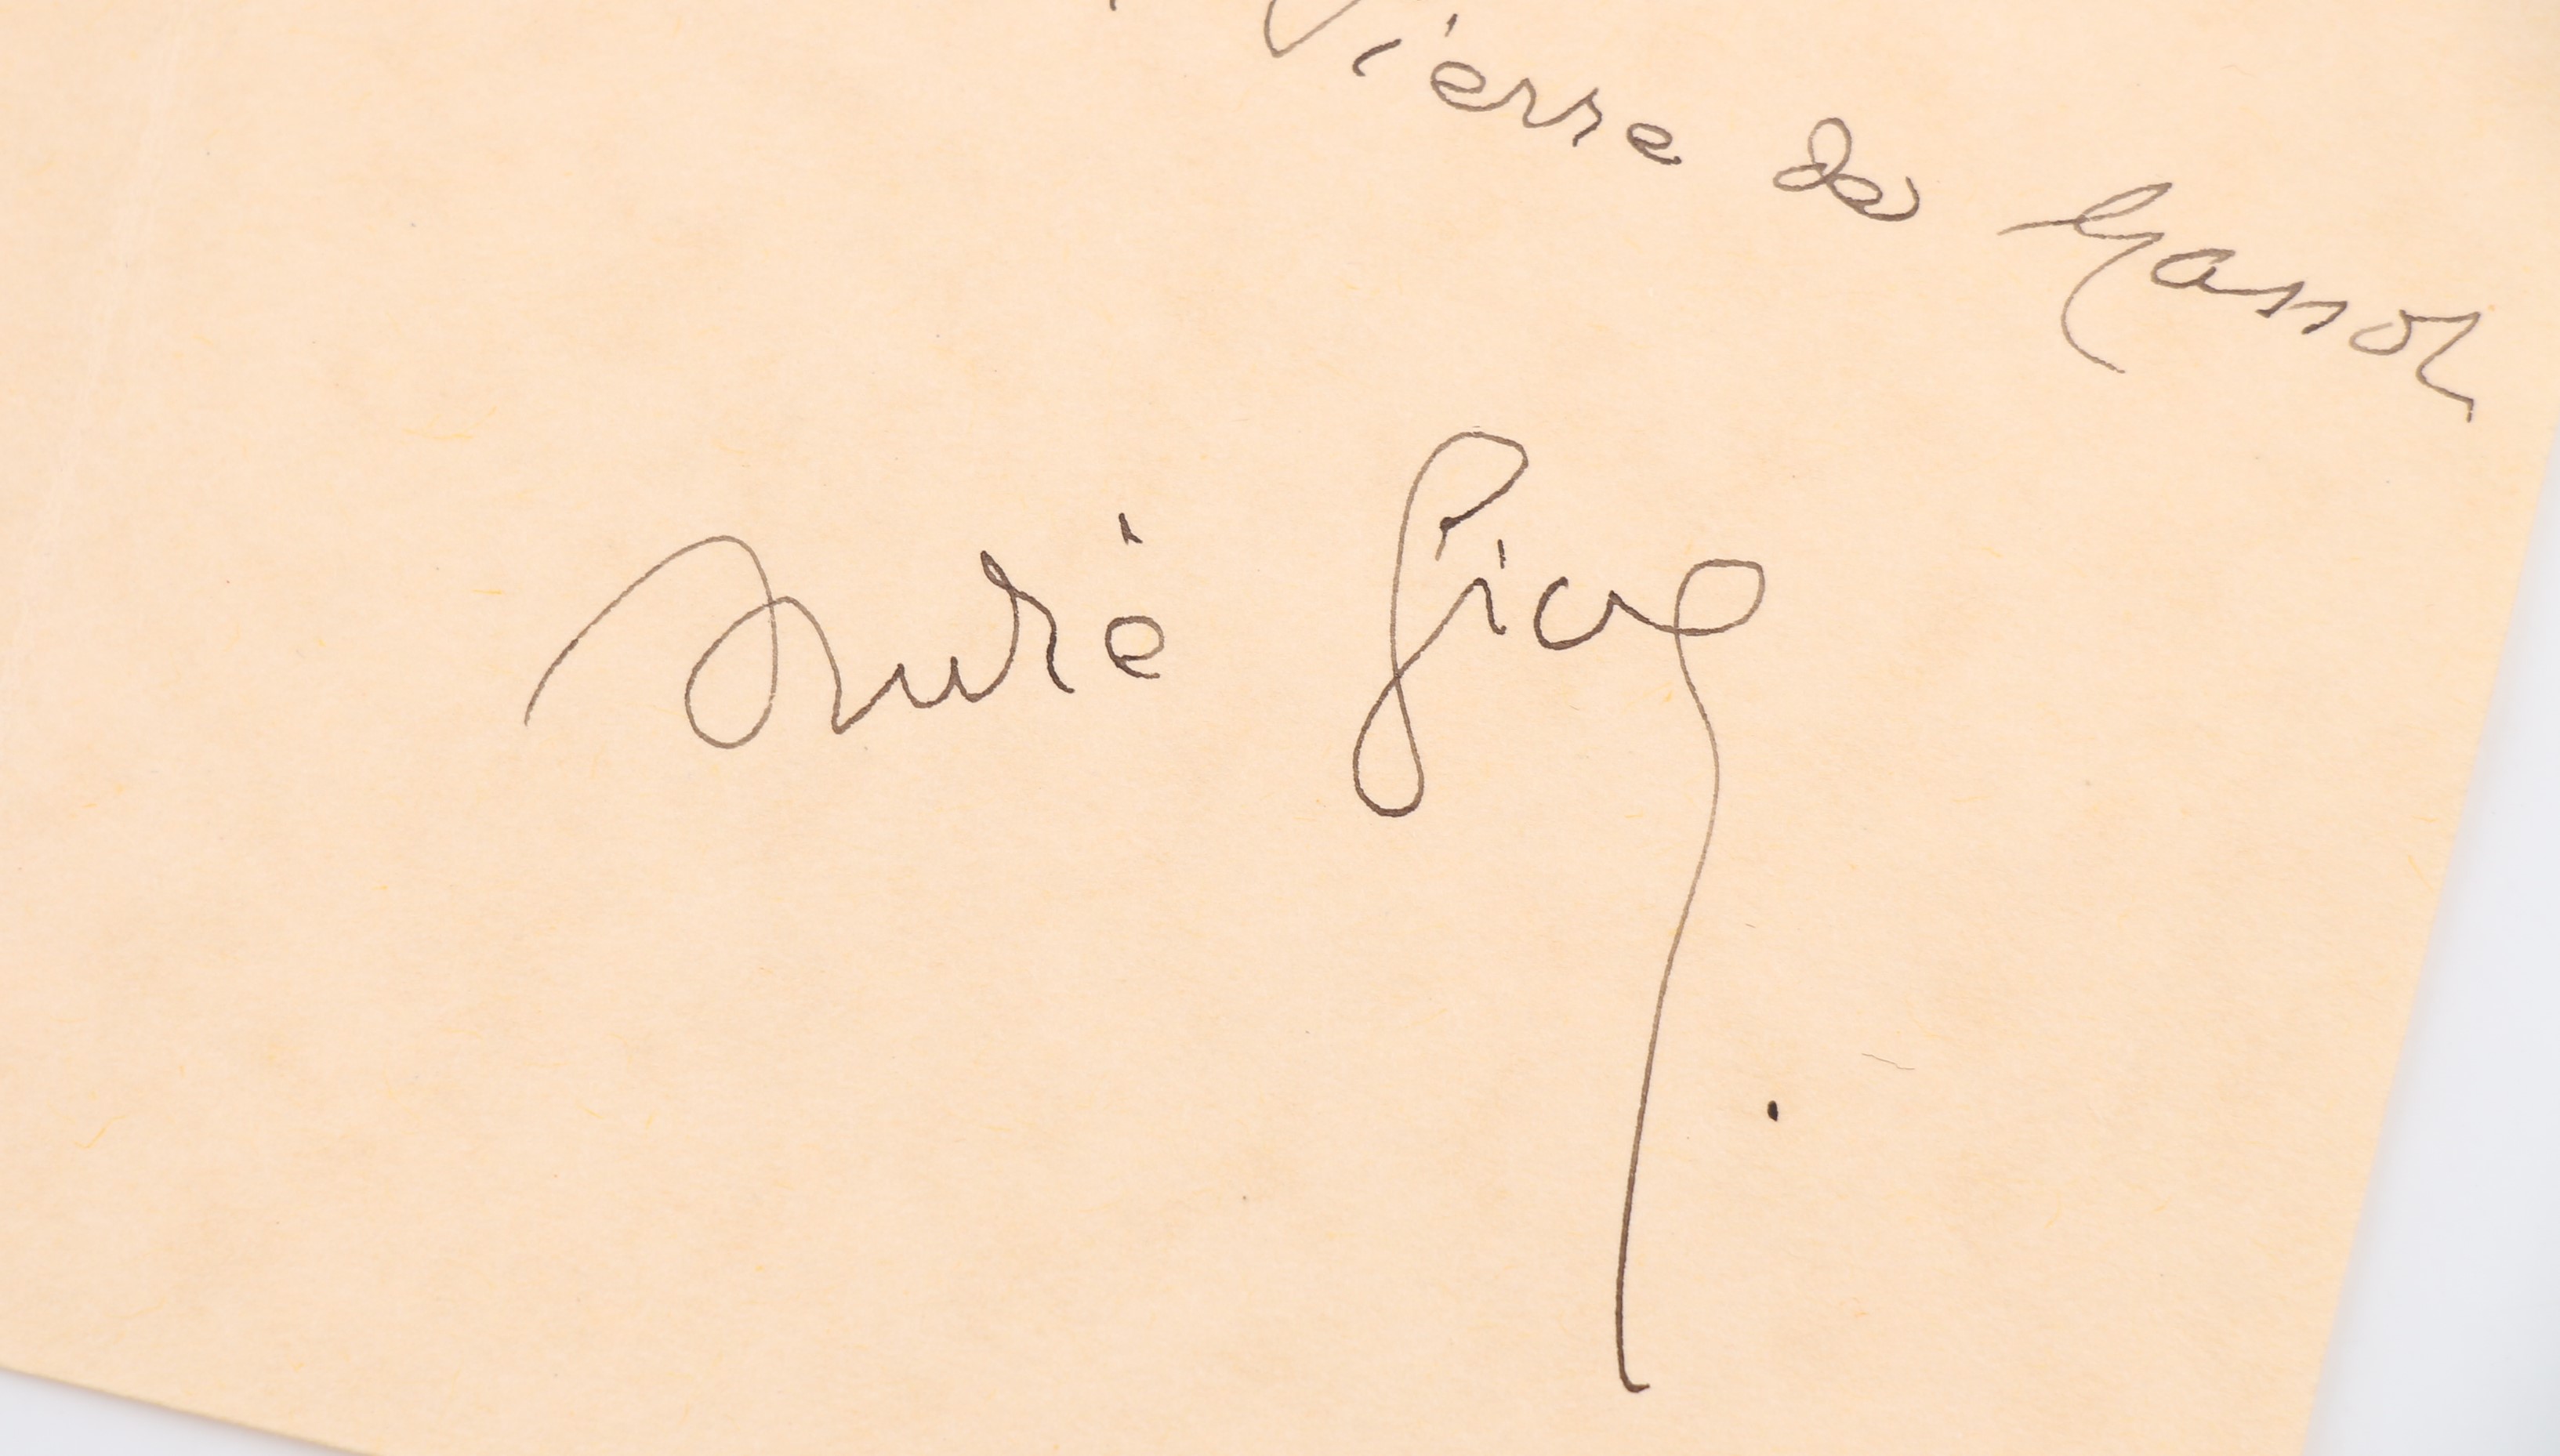 Pierre de Massot
André Gide